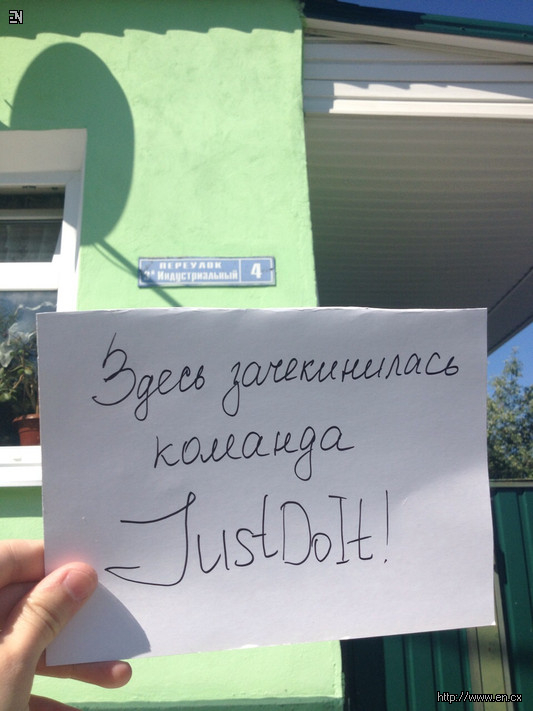 EN
ПЕРЕУЛОК
3й Индустриальный 4
Здесь зачекинилась
команда
JustDoIt!
http://www.en.cx